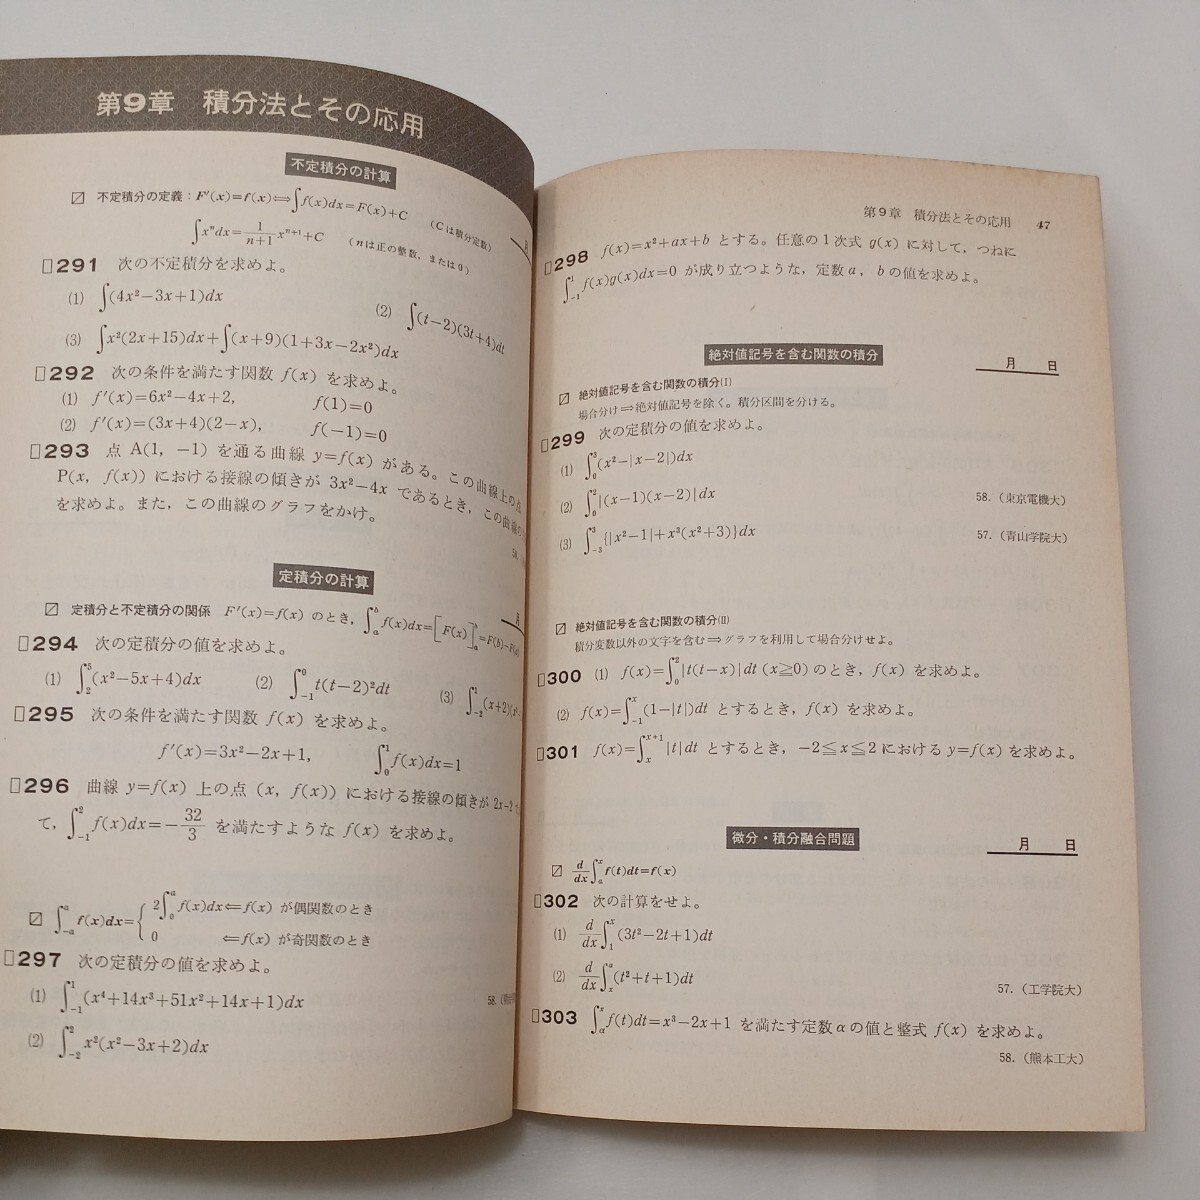 第9章 積分法とその応用
不定積分の計算
不定積分の定義：F′(x)=f(x)⟺∫f(x)dx=F(x)+C (Cは積分定数)
∫xⁿdx=1/(n+1) xⁿ⁺¹+C (nは正の整数，または0)
291 次の不定積分を求めよ。
(1) ∫(4x²−3x+1)dx
(2) ∫(t−2)(3t+4)dt
(3) ∫x²(2x+15)dx+∫(x+9)(1+3x−2x²)dx
292 次の条件を満たす関数 f(x) を求めよ。
(1) f′(x)=6x²−4x+2, f(1)=0
(2) f′(x)=(3x+4)(2−x), f(−1)=0
293 点 A(1, −1) を通る曲線 y=f(x) がある。この曲線上の点
P(x, f(x)) における接線の傾きが 3x²−4x であるとき，この曲線の
を求めよ。また，この曲線のグラフをかけ。
58.
定積分の計算
定積分と不定積分の関係 F′(x)=f(x) のとき，∫_a^b f(x)dx=[F(x)]_a^b=F(b)−F(a)
294 次の定積分の値を求めよ。
(1) ∫_2^5(x²−5x+4)dx
(2) ∫_{−1}^0 t(t−2)²dt
(3) ∫_{−2}^1(x+2)
295 次の条件を満たす関数 f(x) を求めよ。
f′(x)=3x²−2x+1, ∫_0^1 f(x)dx=1
296 曲線 y=f(x) 上の点 (x, f(x)) における接線の傾きが 2x−2
て，∫_{−1}^2 f(x)dx=−32/3 を満たすような f(x) を求めよ。
∫_{−a}^a f(x)dx={ 2∫_0^a f(x)dx⟸f(x) が偶関数のとき
0 ⟸f(x) が奇関数のとき
297 次の定積分の値を求めよ。
(1) ∫_{−1}^1(x⁴+14x³+51x²+14x+1)dx
58.
(2) ∫_{−2}^2 x²(x²−3x+2)dx
第9章 積分法とその応用 47
298 f(x)=x²+ax+b とする。任意の1次式 g(x) に対して，つねに
∫_{−1}^1 f(x)g(x)dx=0 が成り立つような，定数 a，b の値を求めよ。
絶対値記号を含む関数の積分
月 日
絶対値記号を含む関数の積分(I)
場合分け⟹絶対値記号を除く。積分区間を分ける。
299 次の定積分の値を求めよ。
(1) ∫_0^3(x²−|x−2|)dx
(2) ∫_0^2|(x−1)(x−2)|dx 58.(東京電機大)
(3) ∫_{−3}^3{|x²−1|+x³(x²+3)}dx 57.(青山学院大)
絶対値記号を含む関数の積分(II)
積分変数以外の文字を含む⟹グラフを利用して場合分けせよ。
300 (1) f(x)=∫_0^2|t(t−x)|dt (x≧0) のとき，f(x) を求めよ。
(2) f(x)=∫_{−1}^x(1−|t|)dt とするとき，f(x) を求めよ。
301 f(x)=∫_x^{x+1}|t|dt とするとき，−2≦x≦2における y=f(x) を求めよ。
微分・積分融合問題
月 日
d/dx∫_a^x f(t)dt=f(x)
302 次の計算をせよ。
(1) d/dx∫_1^x(3t²−2t+1)dt
(2) d/dx∫_x^a(t²+t+1)dt 57.(工学院大)
303 ∫_α^x f(t)dt=x³−2x+1 を満たす定数 α の値と整式 f(x) を求めよ。
58.(熊本工大)